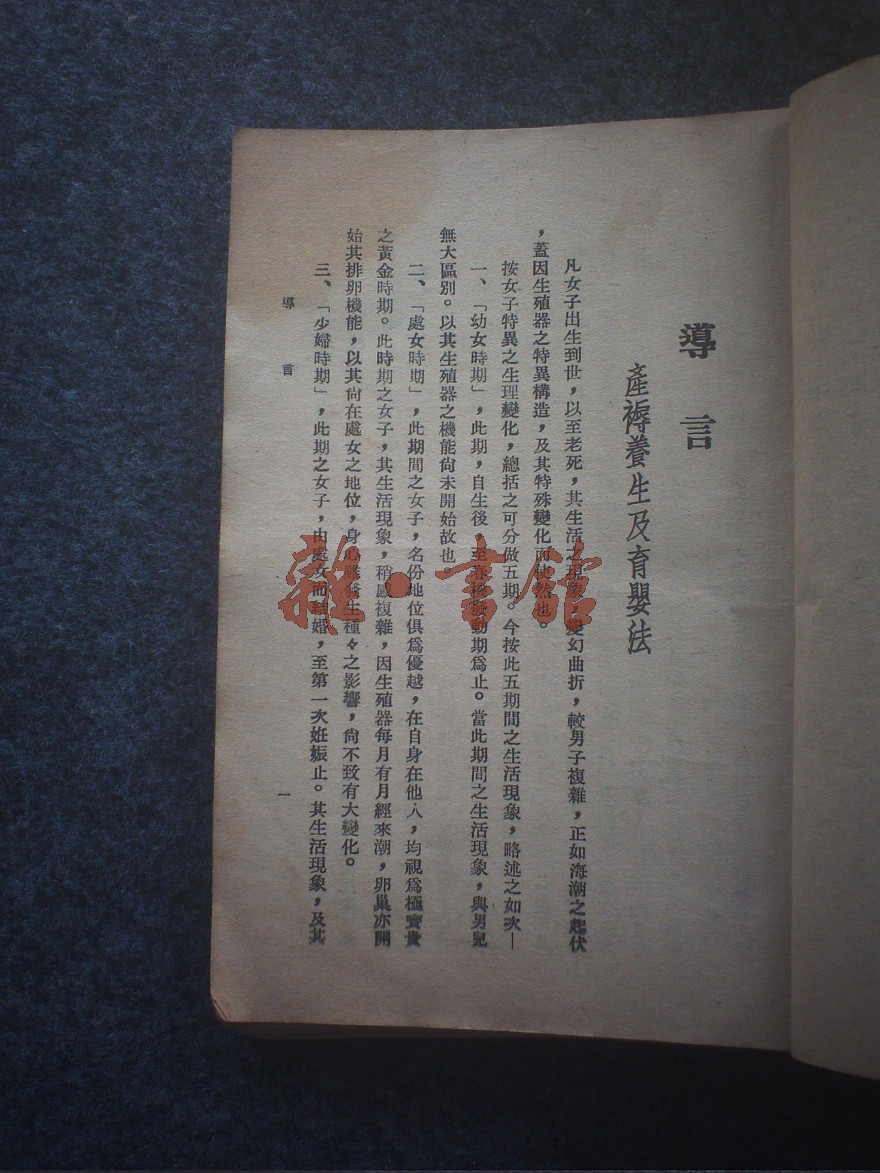 導言
產褥養生及育嬰法
凡女子出生到世，以至老死，其生活之現象，變幻曲折，較男子複雜，正如海潮之起伏
，蓋因生殖器之特異構造，及其特殊變化而使然也。
按女子特異之生理變化，總括之可分做五期。今按此五期間之生活現象，略述之如次—
一、「幼女時期」，此期，自生後，至春機發動期為止。當此期間之生活現象，與男兒
無大區別。以其生殖器之機能尙未開始故也。
二、「處女時期」，此期間之女子，名份地位俱爲優越，在自身在他人，均視爲極寶貴
之黃金時期。此時期之女子，其生活現象，稍感複雜，因生殖器每月有月經來潮，卵巢亦開
始其排卵機能，以其尙在處女之地位，身心雖發生種々之影響，尙不致有大變化。
三、「少婦時期」，此期之女子，由處女而結婚，至第一次姙娠止。其生活現象，及其
導言
一
雜·書館